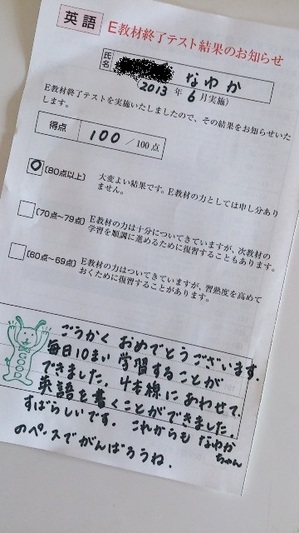 英語 E教材終了テスト結果のお知らせ
氏名 なゆか
(2013年6月実施)
E教材終了テストを実施いたしましたので、その結果をお知らせいたします。
得点 100/100点
(80点以上) 大変よい結果です。E教材の力としては申し分ありません。
(70点~79点) E教材の力は十分についてきていますが、次教材の学習を順調に進めるために復習することもあります。
(60点~69点) E教材の力はついてきていますが、習熟度を高めておくために復習することがあります。
ごうかく おめでとうございます.
毎日10まい 学習することが
できました。4本線にあわせて、
英語を書くことができました。
すばらしいです。これからも なゆかちゃん
のペースでがんばろうね.